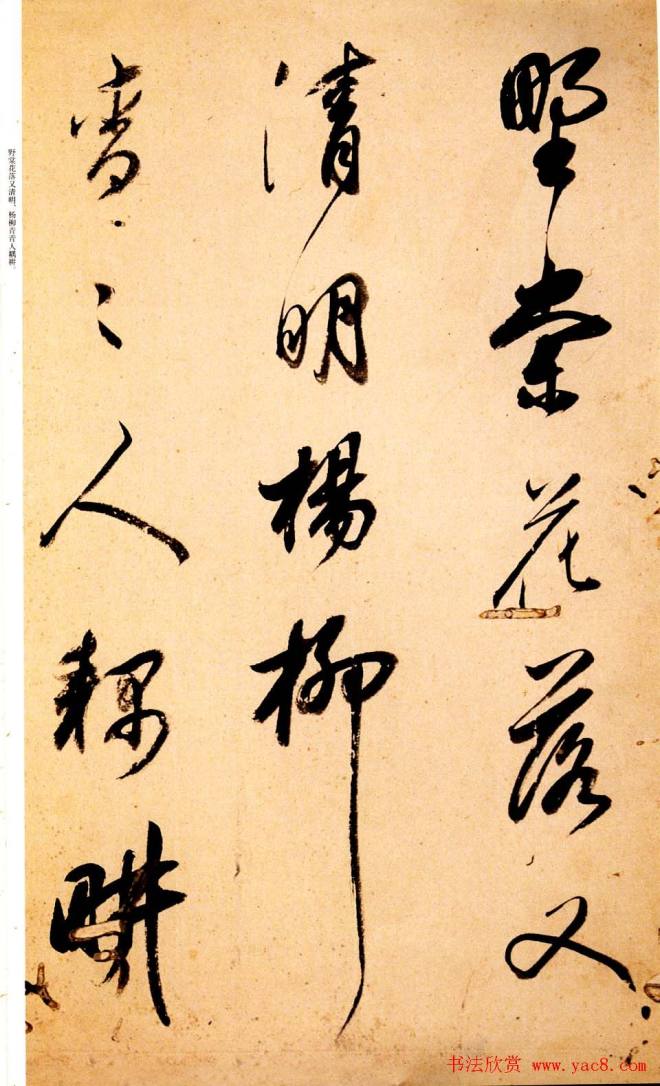 野棠花落又
清明楊柳
青〻人耦畊
野棠花落又清明,杨柳青青人耦耕。
书法欣赏 www.yac8.com